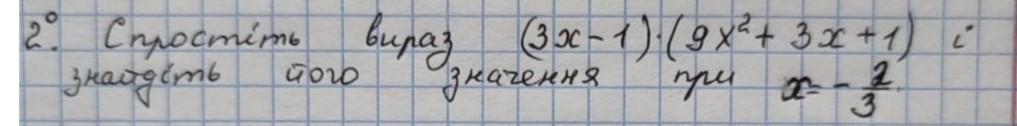 2°. Спростіть вираз (3x-1)·(9x²+3x+1) і
знайдіть його значення при x=-2/3.